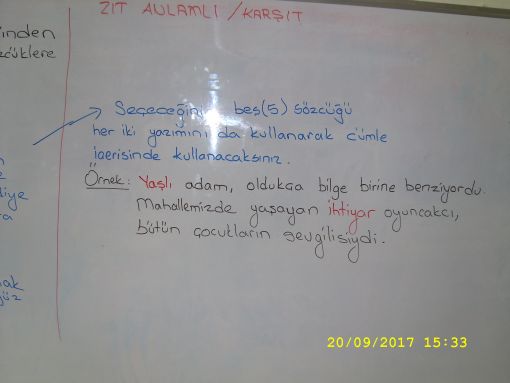 ZIT ANLAMLI / KARŞIT
inden
zcüklere
→ Seçeceğiniz beş(5) sözcüğü
her iki yazımını da kullanarak cümle
içerisinde kullanacaksınız.
Örnek: Yaşlı adam, oldukça bilge birine benziyordu.
Mahallemizde yaşayan ihtiyar oyuncakcı,
bütün çocukların sevgilisiydi.
20/09/2017 15:33